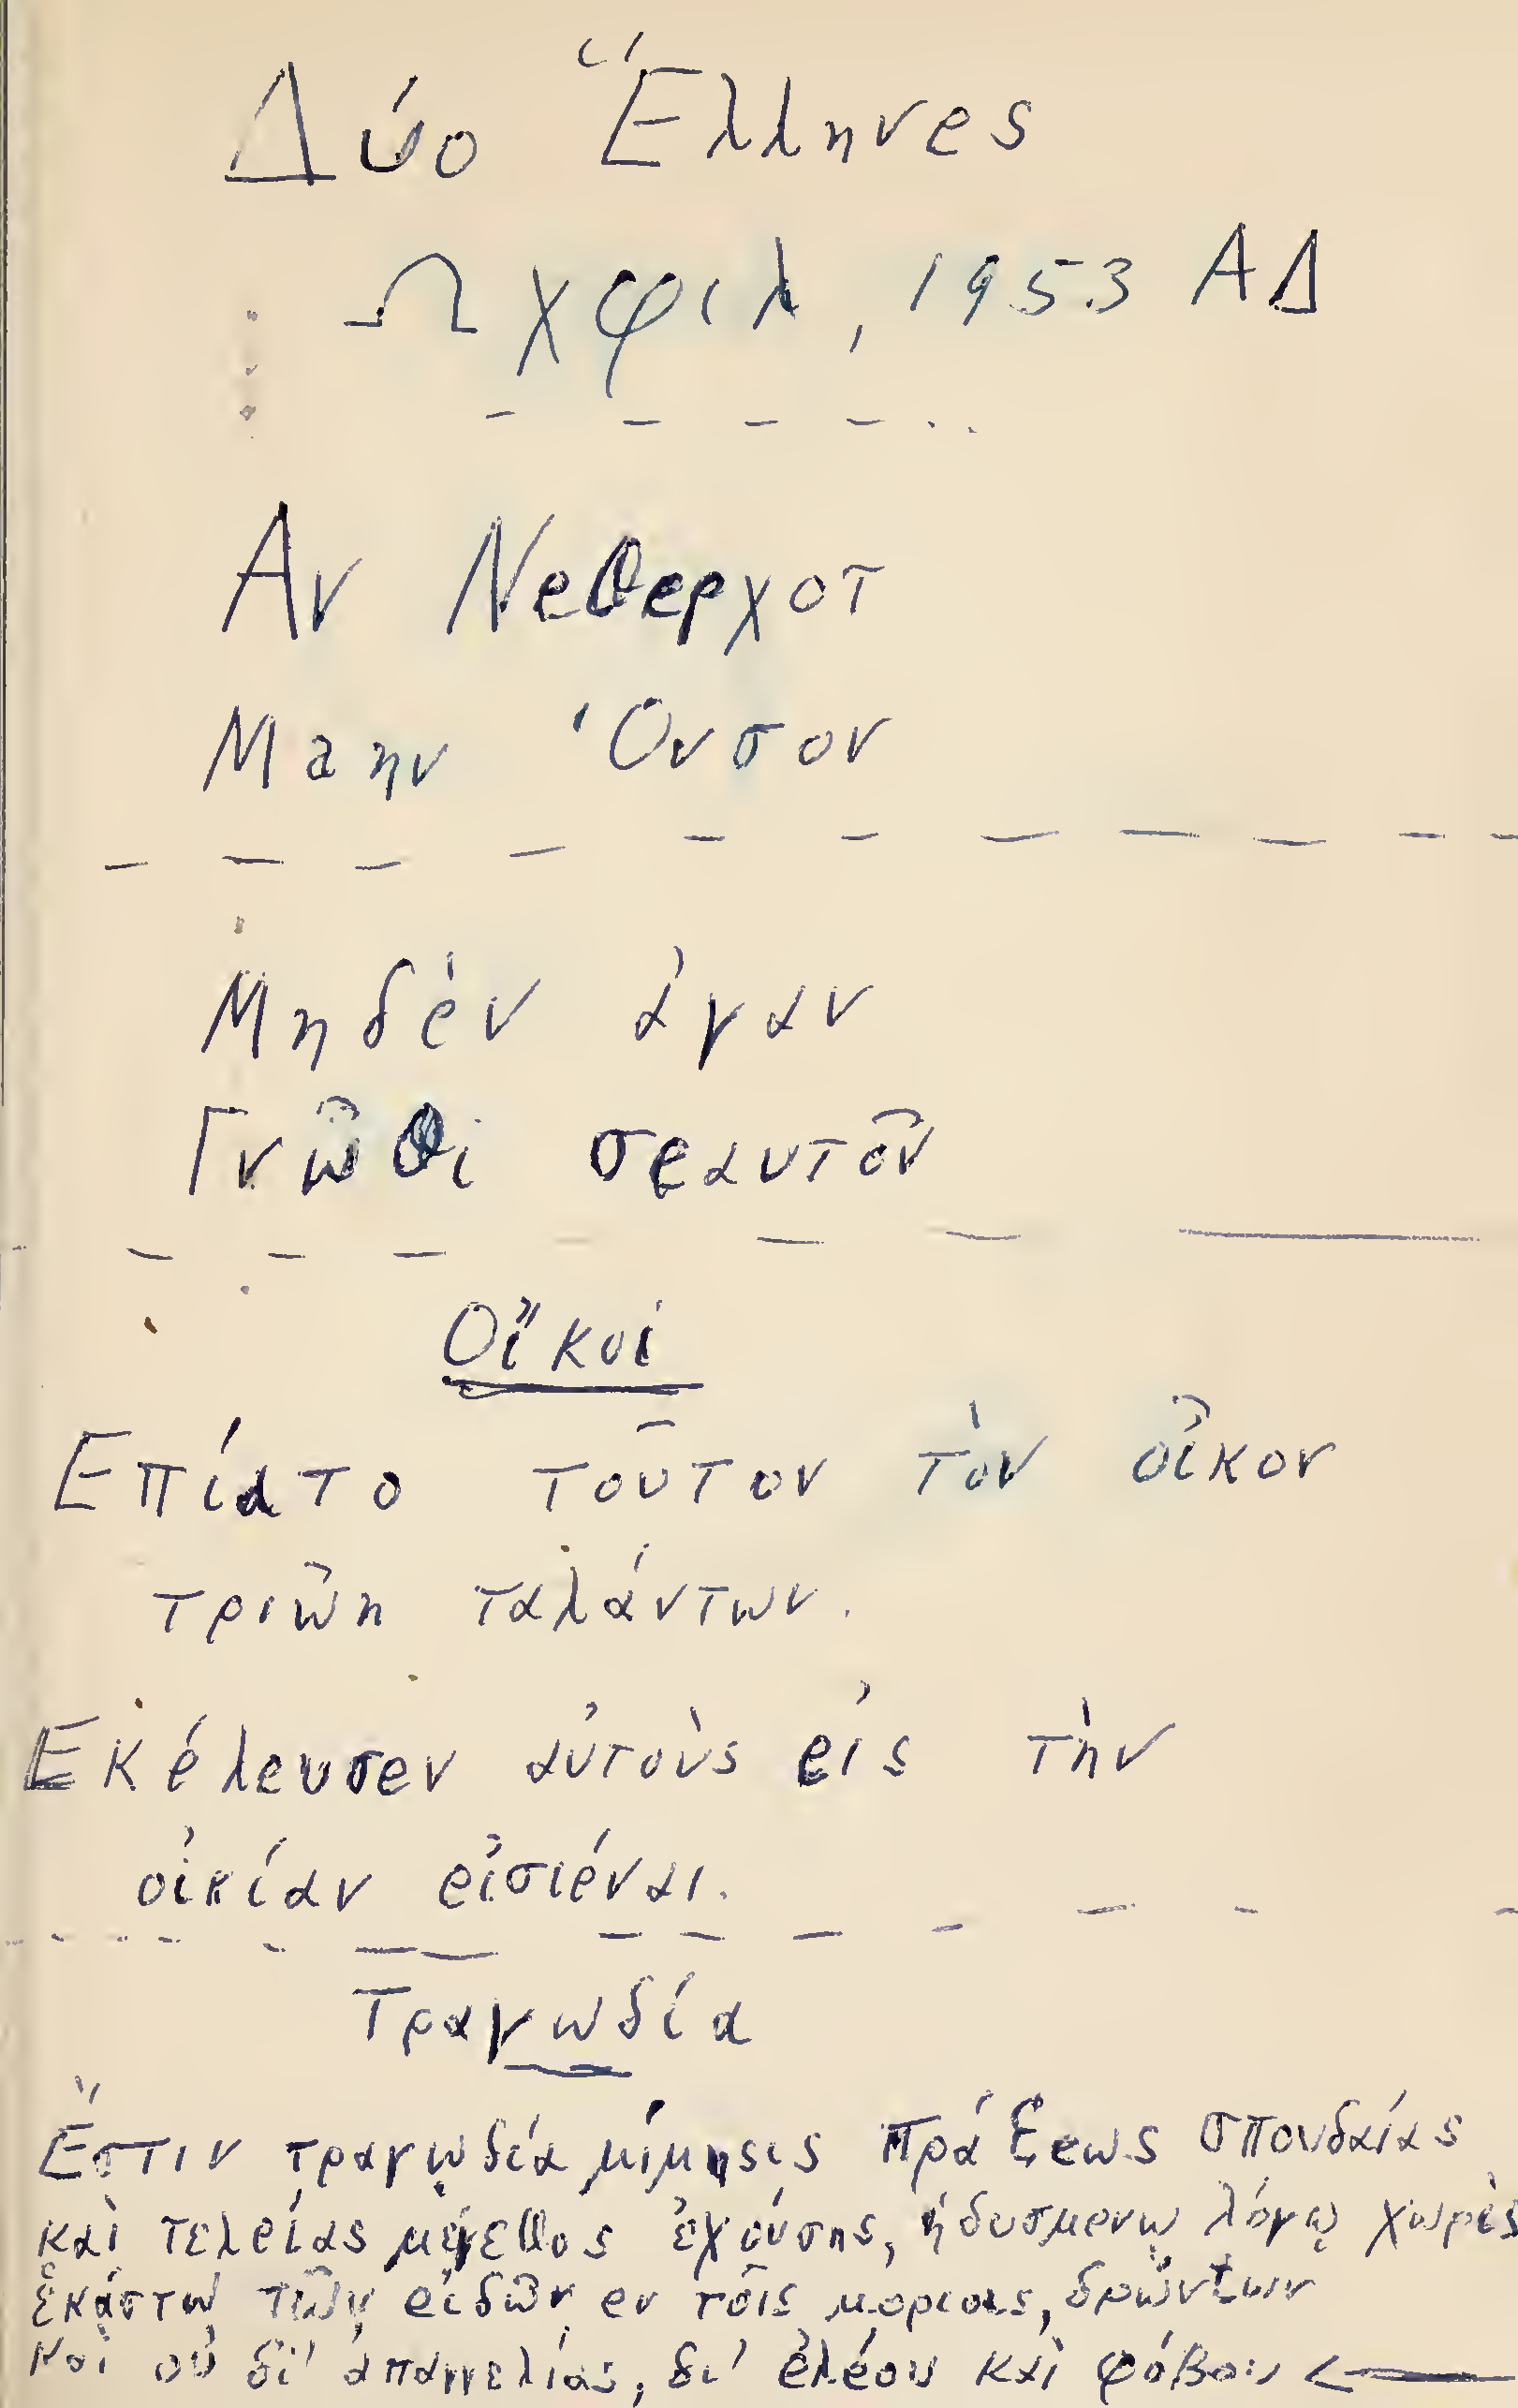 Δύο Ἕλληνες
Ωχφιλ, 1953 ΑΔ
Αν Νεθερχοτ
Μαην Ὁνσον
Μηδὲν ἀγαν
Γνῶθι σεαυτὸν
Οἴκοι
Επίατο τοῦτον τὸν οἶκον
τριῶη ταλάντων.
Εκέλευσεν αὐτοὺς εἰς τὴν
οἰκίαν εἰσιέναι.
Τραγωδία
Ἔστιν τραγῳδία μίμησις πράξεως σπουδαίας
καὶ τελείας μέγεθος ἐχούσης, ἡδυσμενῳ λόγῳ χωρὶς
ἑκάστῳ τῶν εἰδῶν εν τοῖς μοριοις, δρώντων
καὶ οὐ δι' ἀπαγγελίας, δι' ἐλέου καὶ φόβου